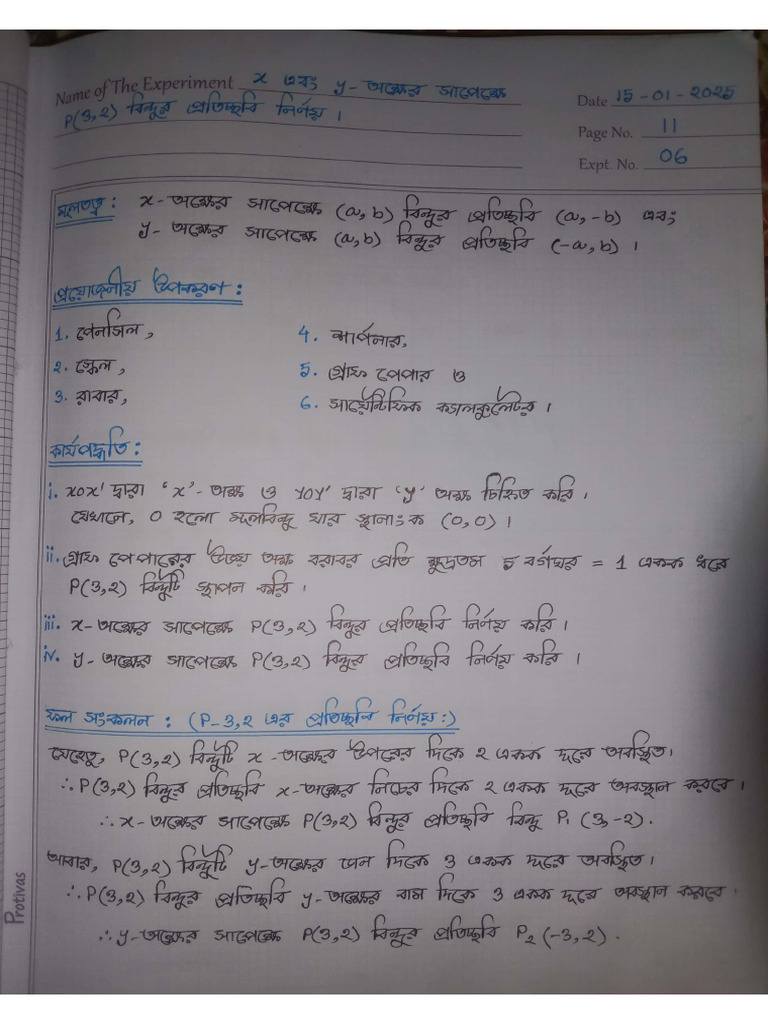 Name of The Experiment x এবং y-অক্ষের সাপেক্ষে
P(3,২) বিন্দুর প্রতিচ্ছবি নির্ণয়।
Date 15-01-2025
Page No. 11
Expt. No. 06
মূলতত্ত্ব : x-অক্ষের সাপেক্ষে (a,b) বিন্দুর প্রতিচ্ছবি (a,-b) এবং
y-অক্ষের সাপেক্ষে (a,b) বিন্দুর প্রতিচ্ছবি (-a,b)।
প্রয়োজনীয় উপকরণ :
1. পেনসিল,
2. স্কেল,
3. রাবার,
4. শার্পনার,
5. গ্রাফ পেপার ও
6. সায়েন্টিফিক ক্যালকুলেটর।
কার্যপদ্ধতি :
i. xox' দ্বারা 'x'-অক্ষ ও yoy' দ্বারা 'y' অক্ষ চিহ্নিত করি।
যেখানে, O হলো মূলবিন্দু যার স্থানাংক (0,0)।
ii. গ্রাফ পেপারের উভয় অক্ষ বরাবর প্রতি ক্ষুদ্রতম 5 বর্গঘর = 1 একক ধরে
P(3,২) বিন্দুটি স্থাপন করি।
iii. x-অক্ষের সাপেক্ষে P(3,২) বিন্দুর প্রতিচ্ছবি নির্ণয় করি।
iv. y-অক্ষের সাপেক্ষে P(3,২) বিন্দুর প্রতিচ্ছবি নির্ণয় করি।
ফল সংকলন : (P-3,২ এর প্রতিচ্ছবি নির্ণয়:)
যেহেতু, P(3,২) বিন্দুটি x-অক্ষের উপরের দিকে ২ একক দূরে অবস্থিত।
∴ P(3,২) বিন্দুর প্রতিচ্ছবি x-অক্ষের নিচের দিকে ২ একক দূরে অবস্থান করবে।
∴ x-অক্ষের সাপেক্ষে P(3,২) বিন্দুর প্রতিচ্ছবি বিন্দু P₁ (3,-২).
আবার, P(3,২) বিন্দুটি y-অক্ষের ডান দিকে 3 একক দূরে অবস্থিত।
∴ P(3,২) বিন্দুর প্রতিচ্ছবি y-অক্ষের বাম দিকে 3 একক দূরে অবস্থান করবে।
∴ y-অক্ষের সাপেক্ষে P(3,২) বিন্দুর প্রতিচ্ছবি P₂ (-3,২).
Protivas